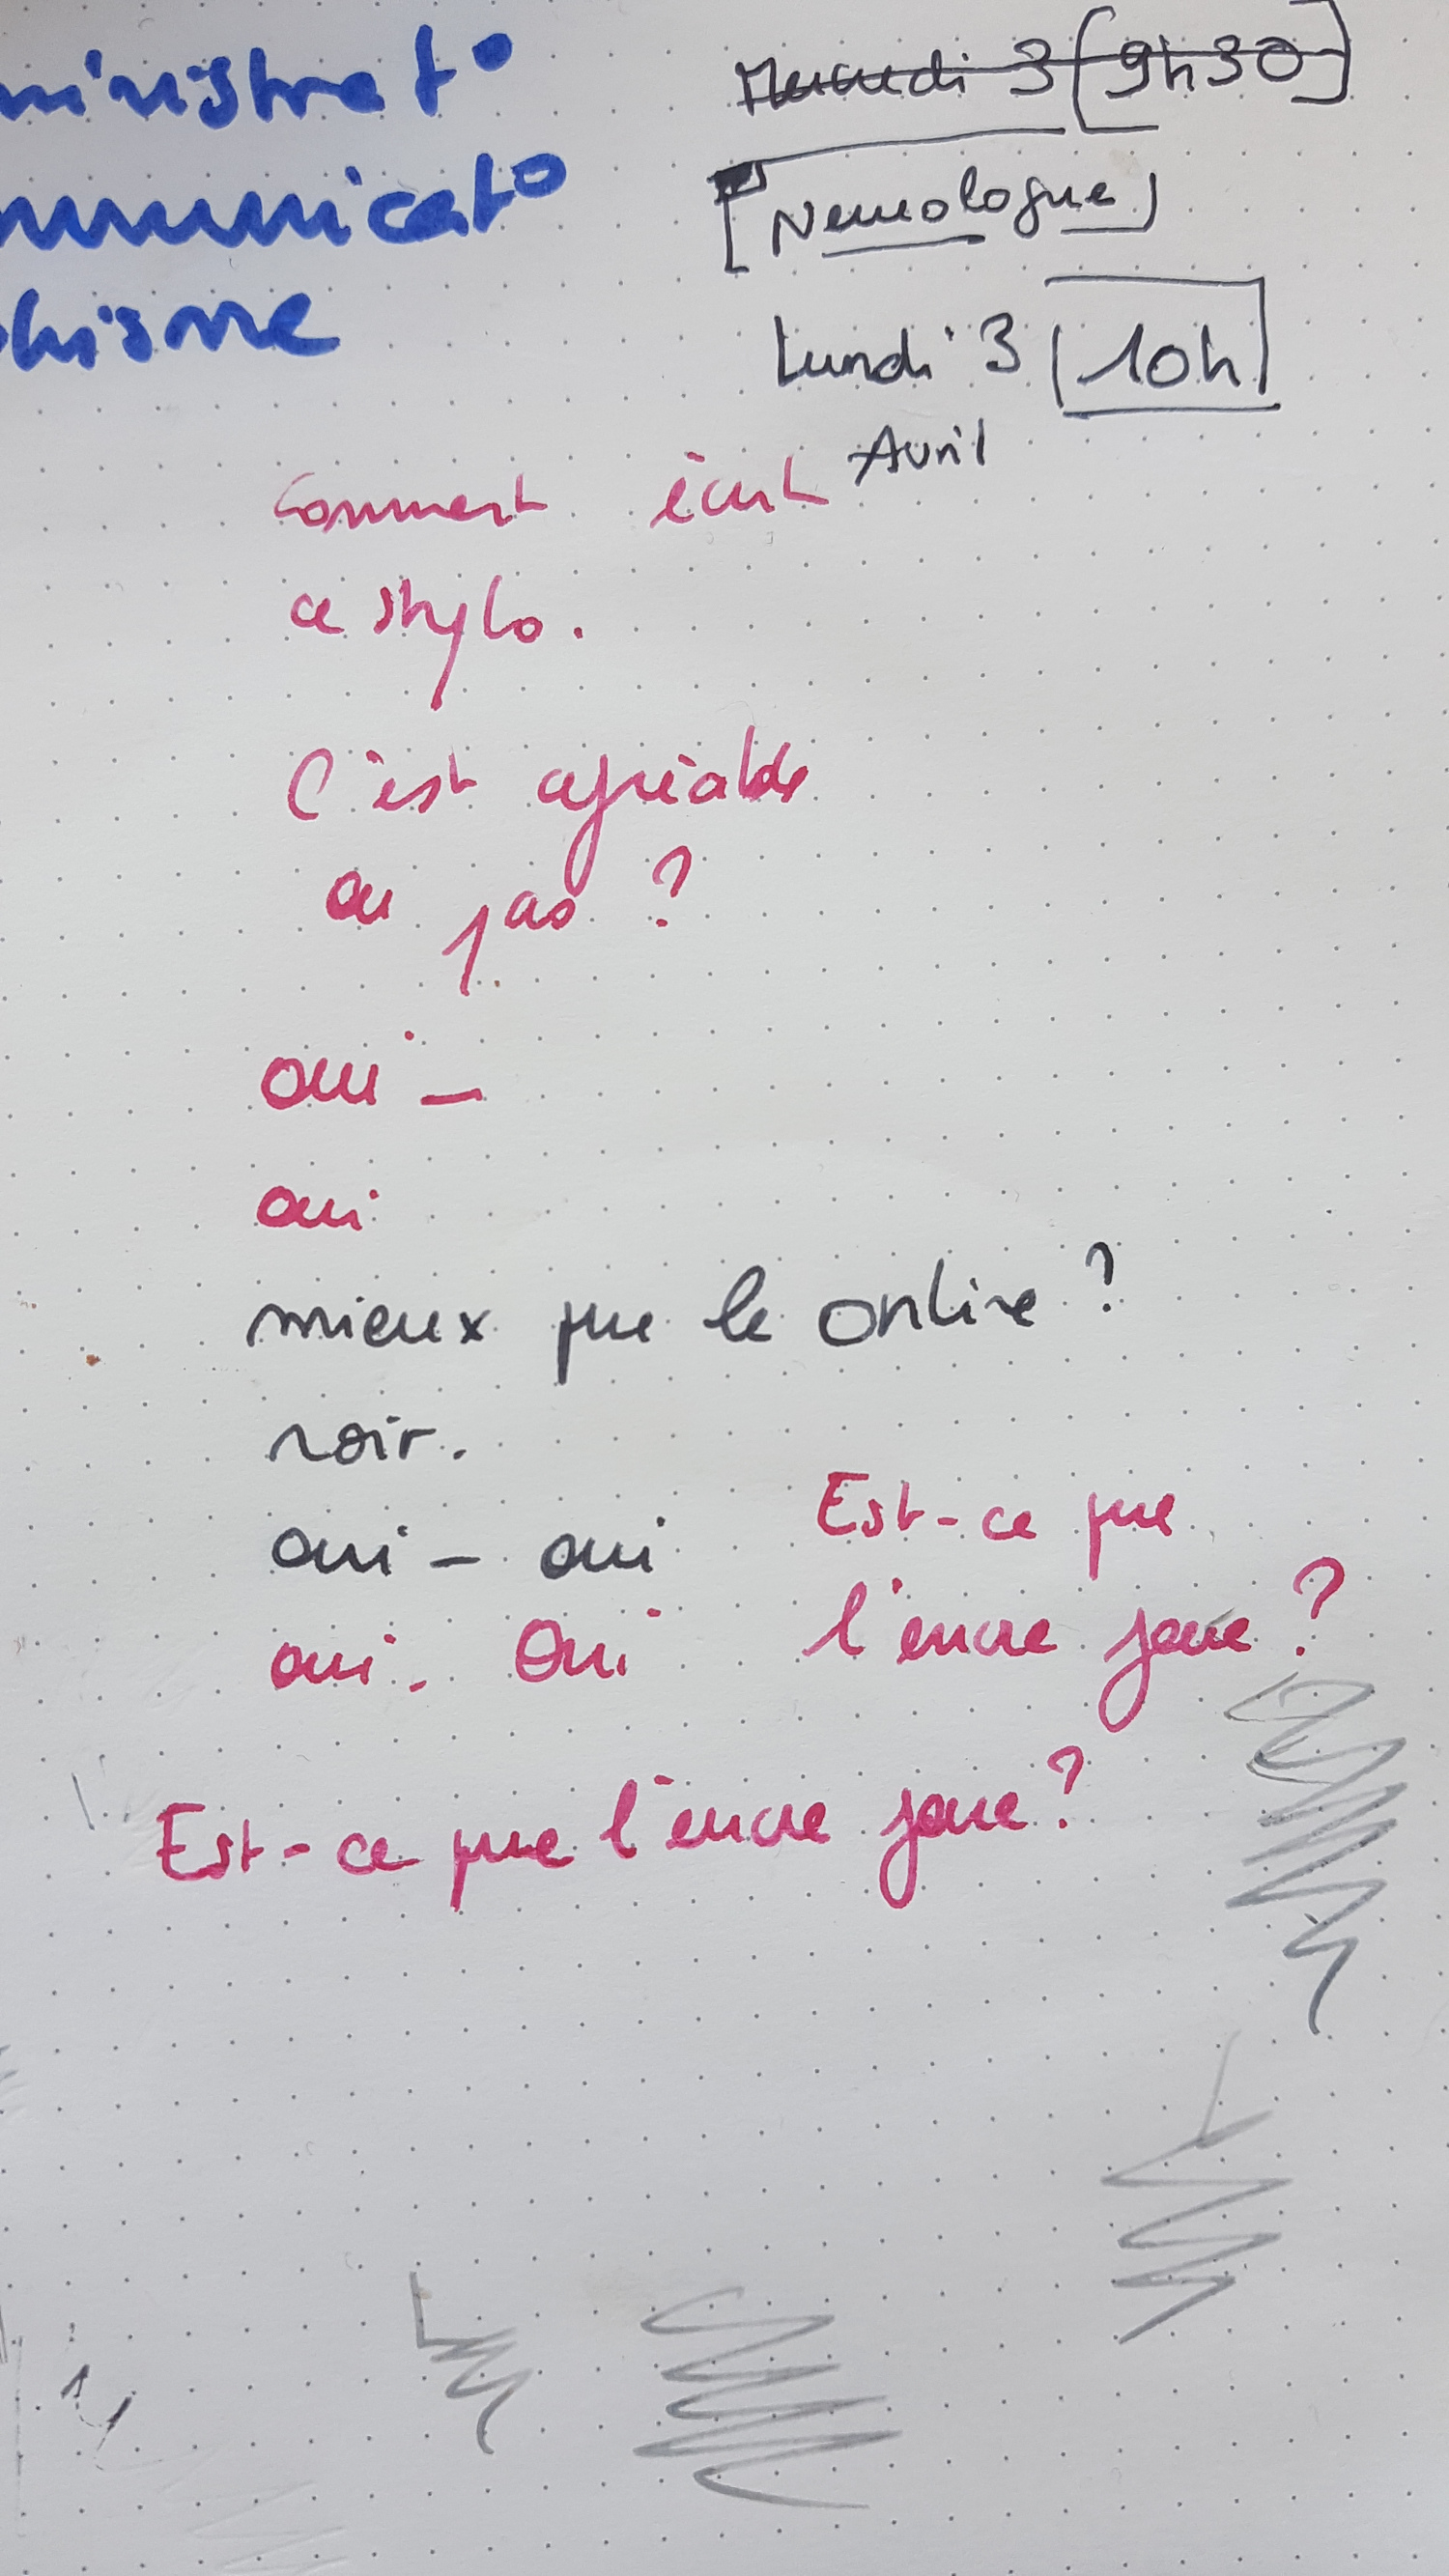 ministrat°
mmunicat°
phisme
Mercredi 3 [9h30]
[Neurologue]
Lundi 3 [10h]
Avril
Comment écrit
ce stylo.
C'est agréable
ou pas ?
oui -
oui
mieux que le online ?
noir.
oui - oui
oui. Oui
Est-ce que
l'encre joue ?
Est-ce que l'encre joue ?